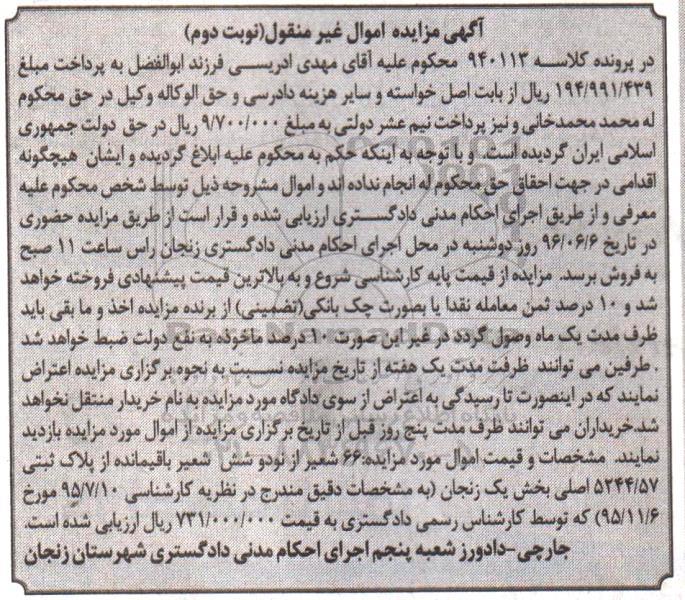 آگهی مزایده اموال غیر منقول(نوبت دوم)
در پرونده کلاسه ۹۴۰۱۱۳ محکوم علیه آقای مهدی ادریسی فرزند ابوالفضل به پرداخت مبلغ
۱۹۴/۹۹۱/۴۳۹ ریال از بابت اصل خواسته و سایر هزینه دادرسی و حق الوکاله وکیل در حق محکوم
له محمد محمدخانی و نیز پرداخت نیم عشر دولتی به مبلغ ۹/۷۰۰/۰۰۰ ریال در حق دولت جمهوری
اسلامی ایران گردیده است و با توجه به اینکه حکم به محکوم علیه ابلاغ گردیده و ایشان هیچگونه
اقدامی در جهت احقاق حق محکوم له انجام نداده اند و اموال مشروحه ذیل توسط شخص محکوم علیه
معرفی و از طریق اجرای احکام مدنی دادگستری ارزیابی شده و قرار است از طریق مزایده حضوری
در تاریخ ۹۶/۰۶/۶ روز دوشنبه در محل اجرای احکام مدنی دادگستری زنجان راس ساعت ۱۱ صبح
به فروش برسد. مزایده از قیمت پایه کارشناسی شروع و به بالاترین قیمت پیشنهادی فروخته خواهد
شد و ۱۰ درصد ثمن معامله نقدا یا بصورت چک بانکی(تضمینی) از برنده مزایده اخذ و ما بقی باید
ظرف مدت یک ماه وصول گردد در غیر این صورت ۱۰ درصد ماخوذه به نفع دولت ضبط خواهد شد
. طرفین می توانند ظرفت مدت یک هفته از تاریخ مزایده نسبت به نحوه برگزاری مزایده اعتراض
نمایند که در اینصورت تا رسیدگی به اعتراض از سوی دادگاه مورد مزایده به نام خریدار منتقل نخواهد
شد.خریداران می توانند ظرف مدت پنج روز قبل از تاریخ برگزاری مزایده از اموال مورد مزایده بازدید
نمایند. مشخصات و قیمت اموال مورد مزایده:۶۶ شعیر از نودو شش شعیر باقیمانده از پلاک ثبتی
۵۲۴۴/۵۷ اصلی بخش یک زنجان (به مشخصات دقیق مندرج در نظریه کارشناسی ۹۵/۷/۱۰ مورخ
۹۵/۱۱/۶) که توسط کارشناس رسمی دادگستری به قیمت ۷۳۱/۰۰۰/۰۰۰ ریال ارزیابی شده است.
جارچی-دادورز شعبه پنجم اجرای احکام مدنی دادگستری شهرستان زنجان